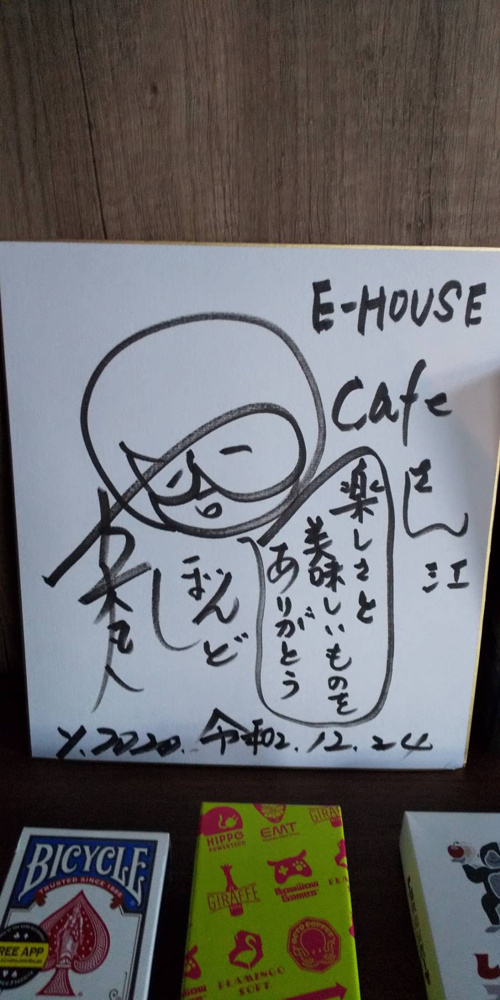 E-HOUSE
Cafe
さん江
楽しさと
美味しいものを
ありがとう
ぼんど
Y.2020.令和02.12.24
BICYCLE
TRUSTED SINCE 1885
FREE APP
HIPPO
POWERTECH
EMT
GIRAFFE
GIRAFFE
Armadillo
Games
FLAMINGO
SOFT